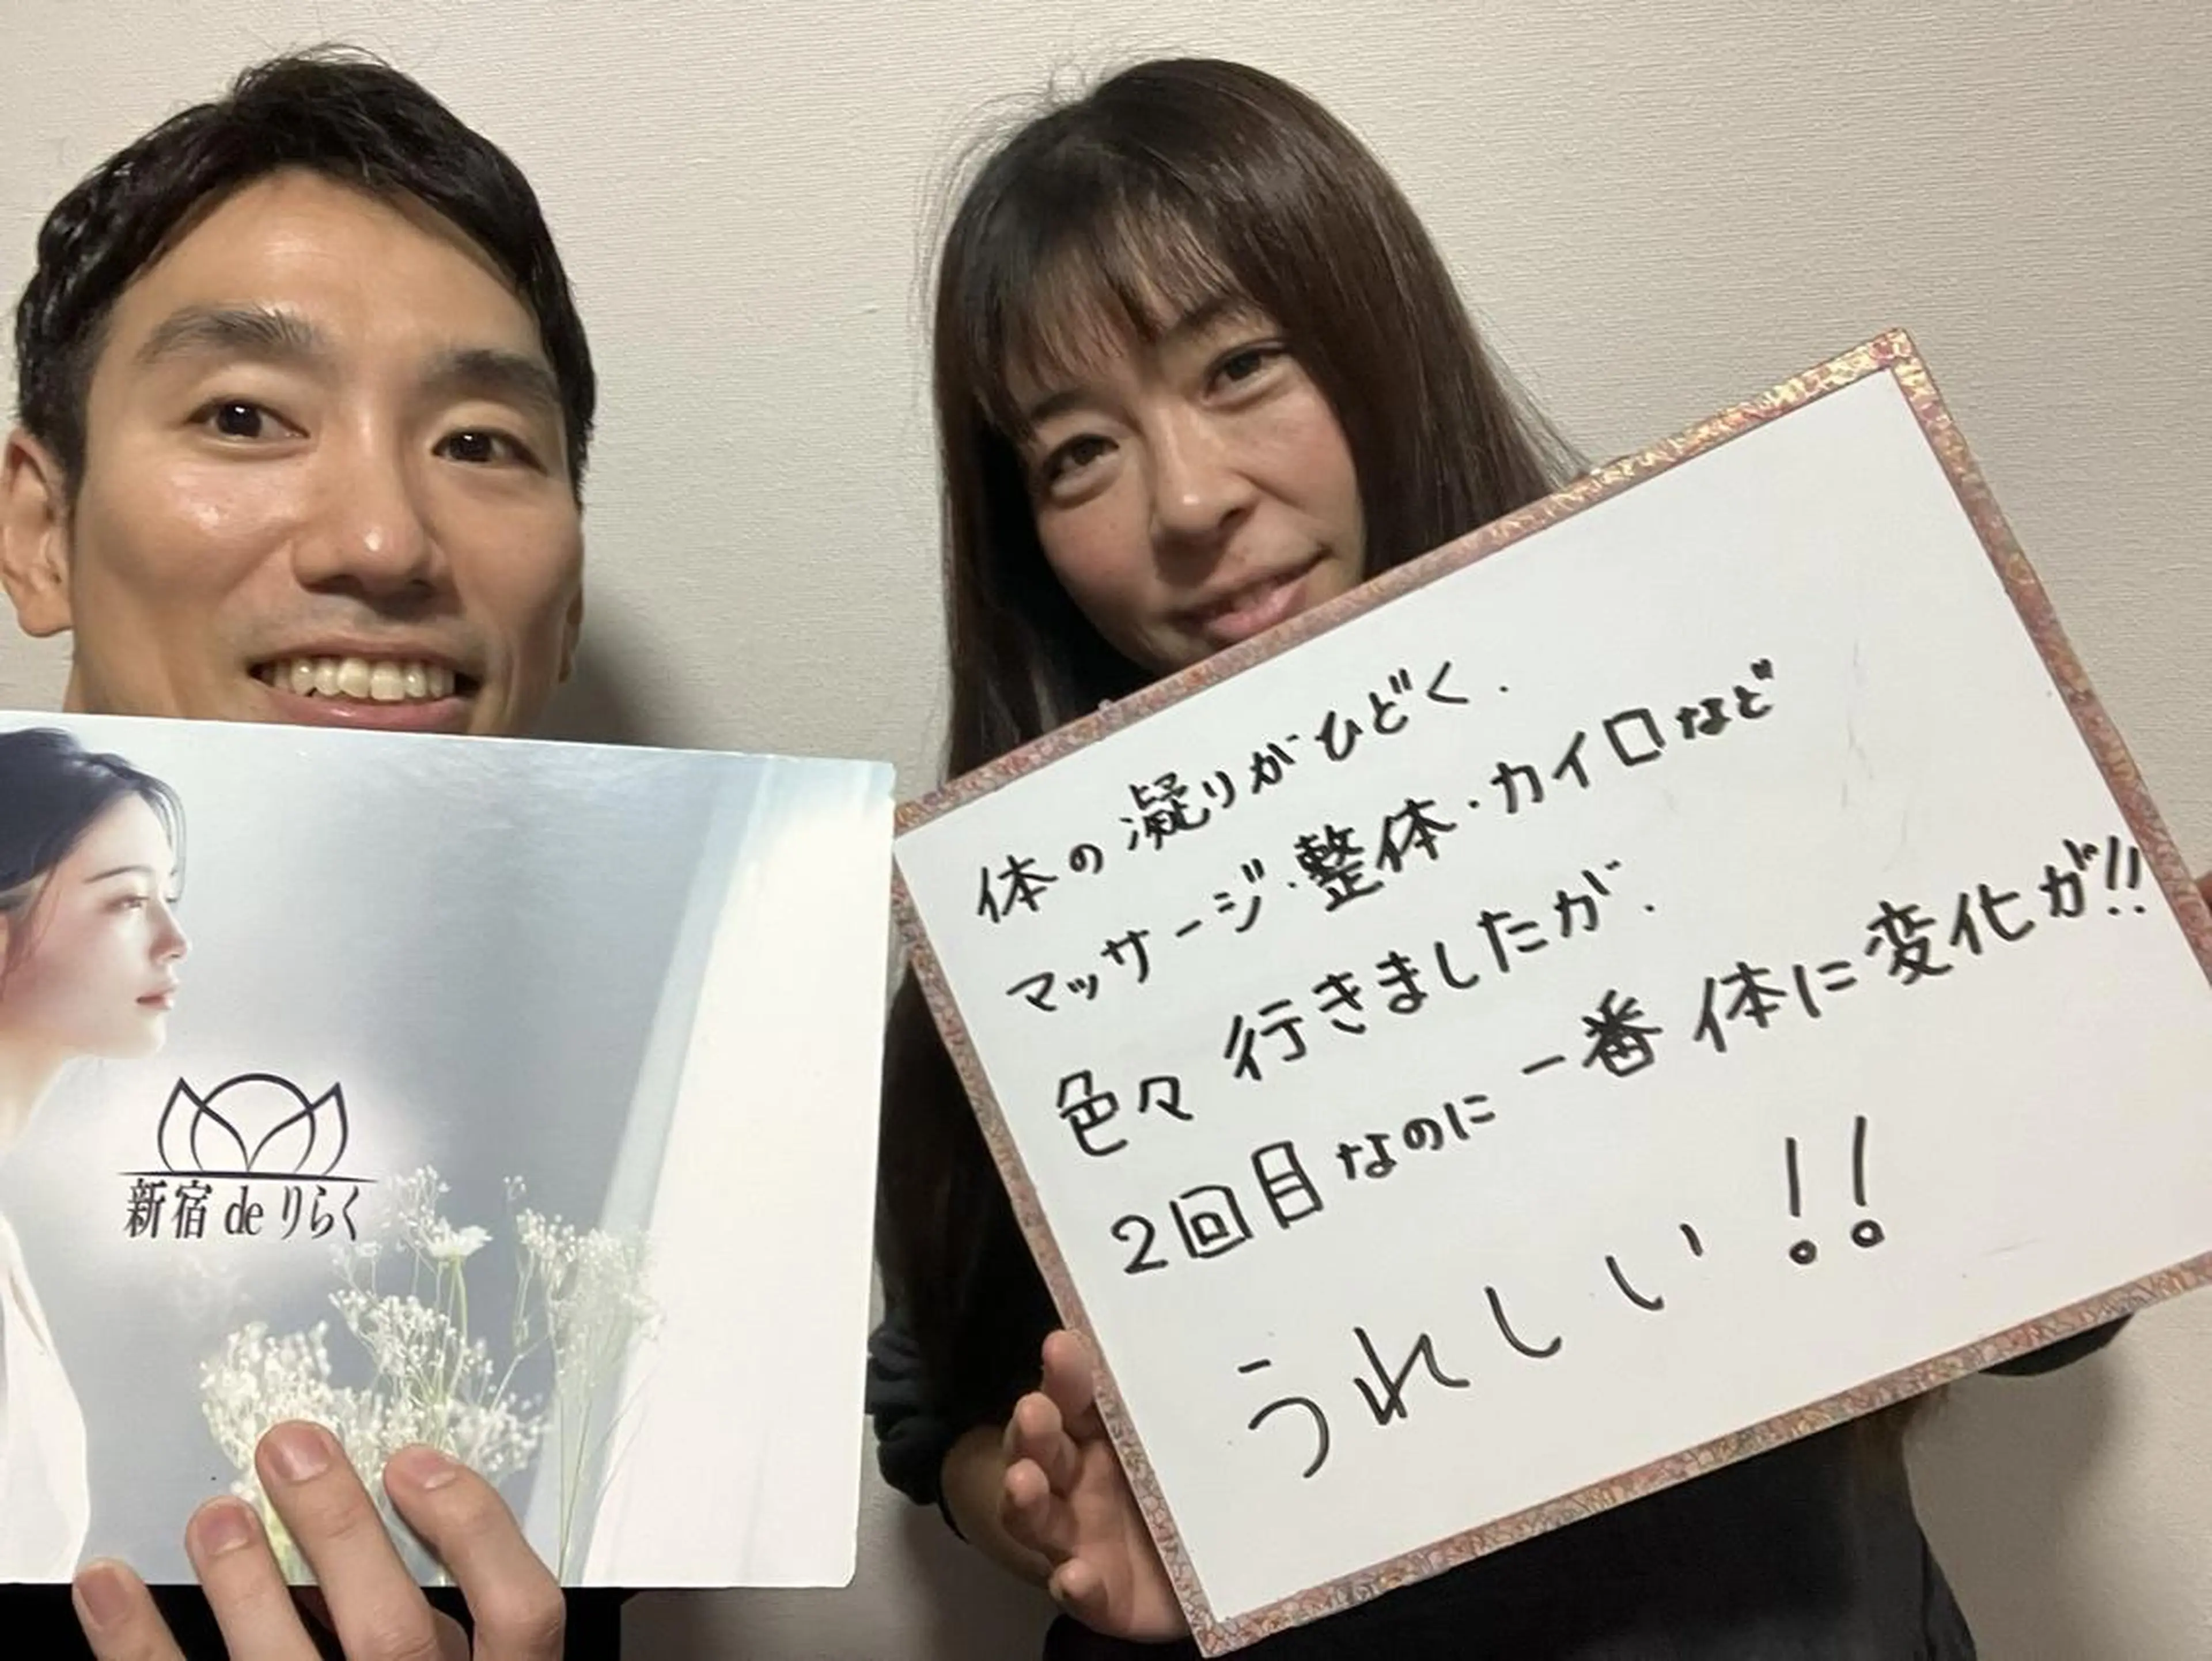 新宿 de りらく
体の凝りがひどく.
マッサージ・整体・カイロなど
色々行きましたが.
2回目なのに一番体に変化が!!
うれしい!!